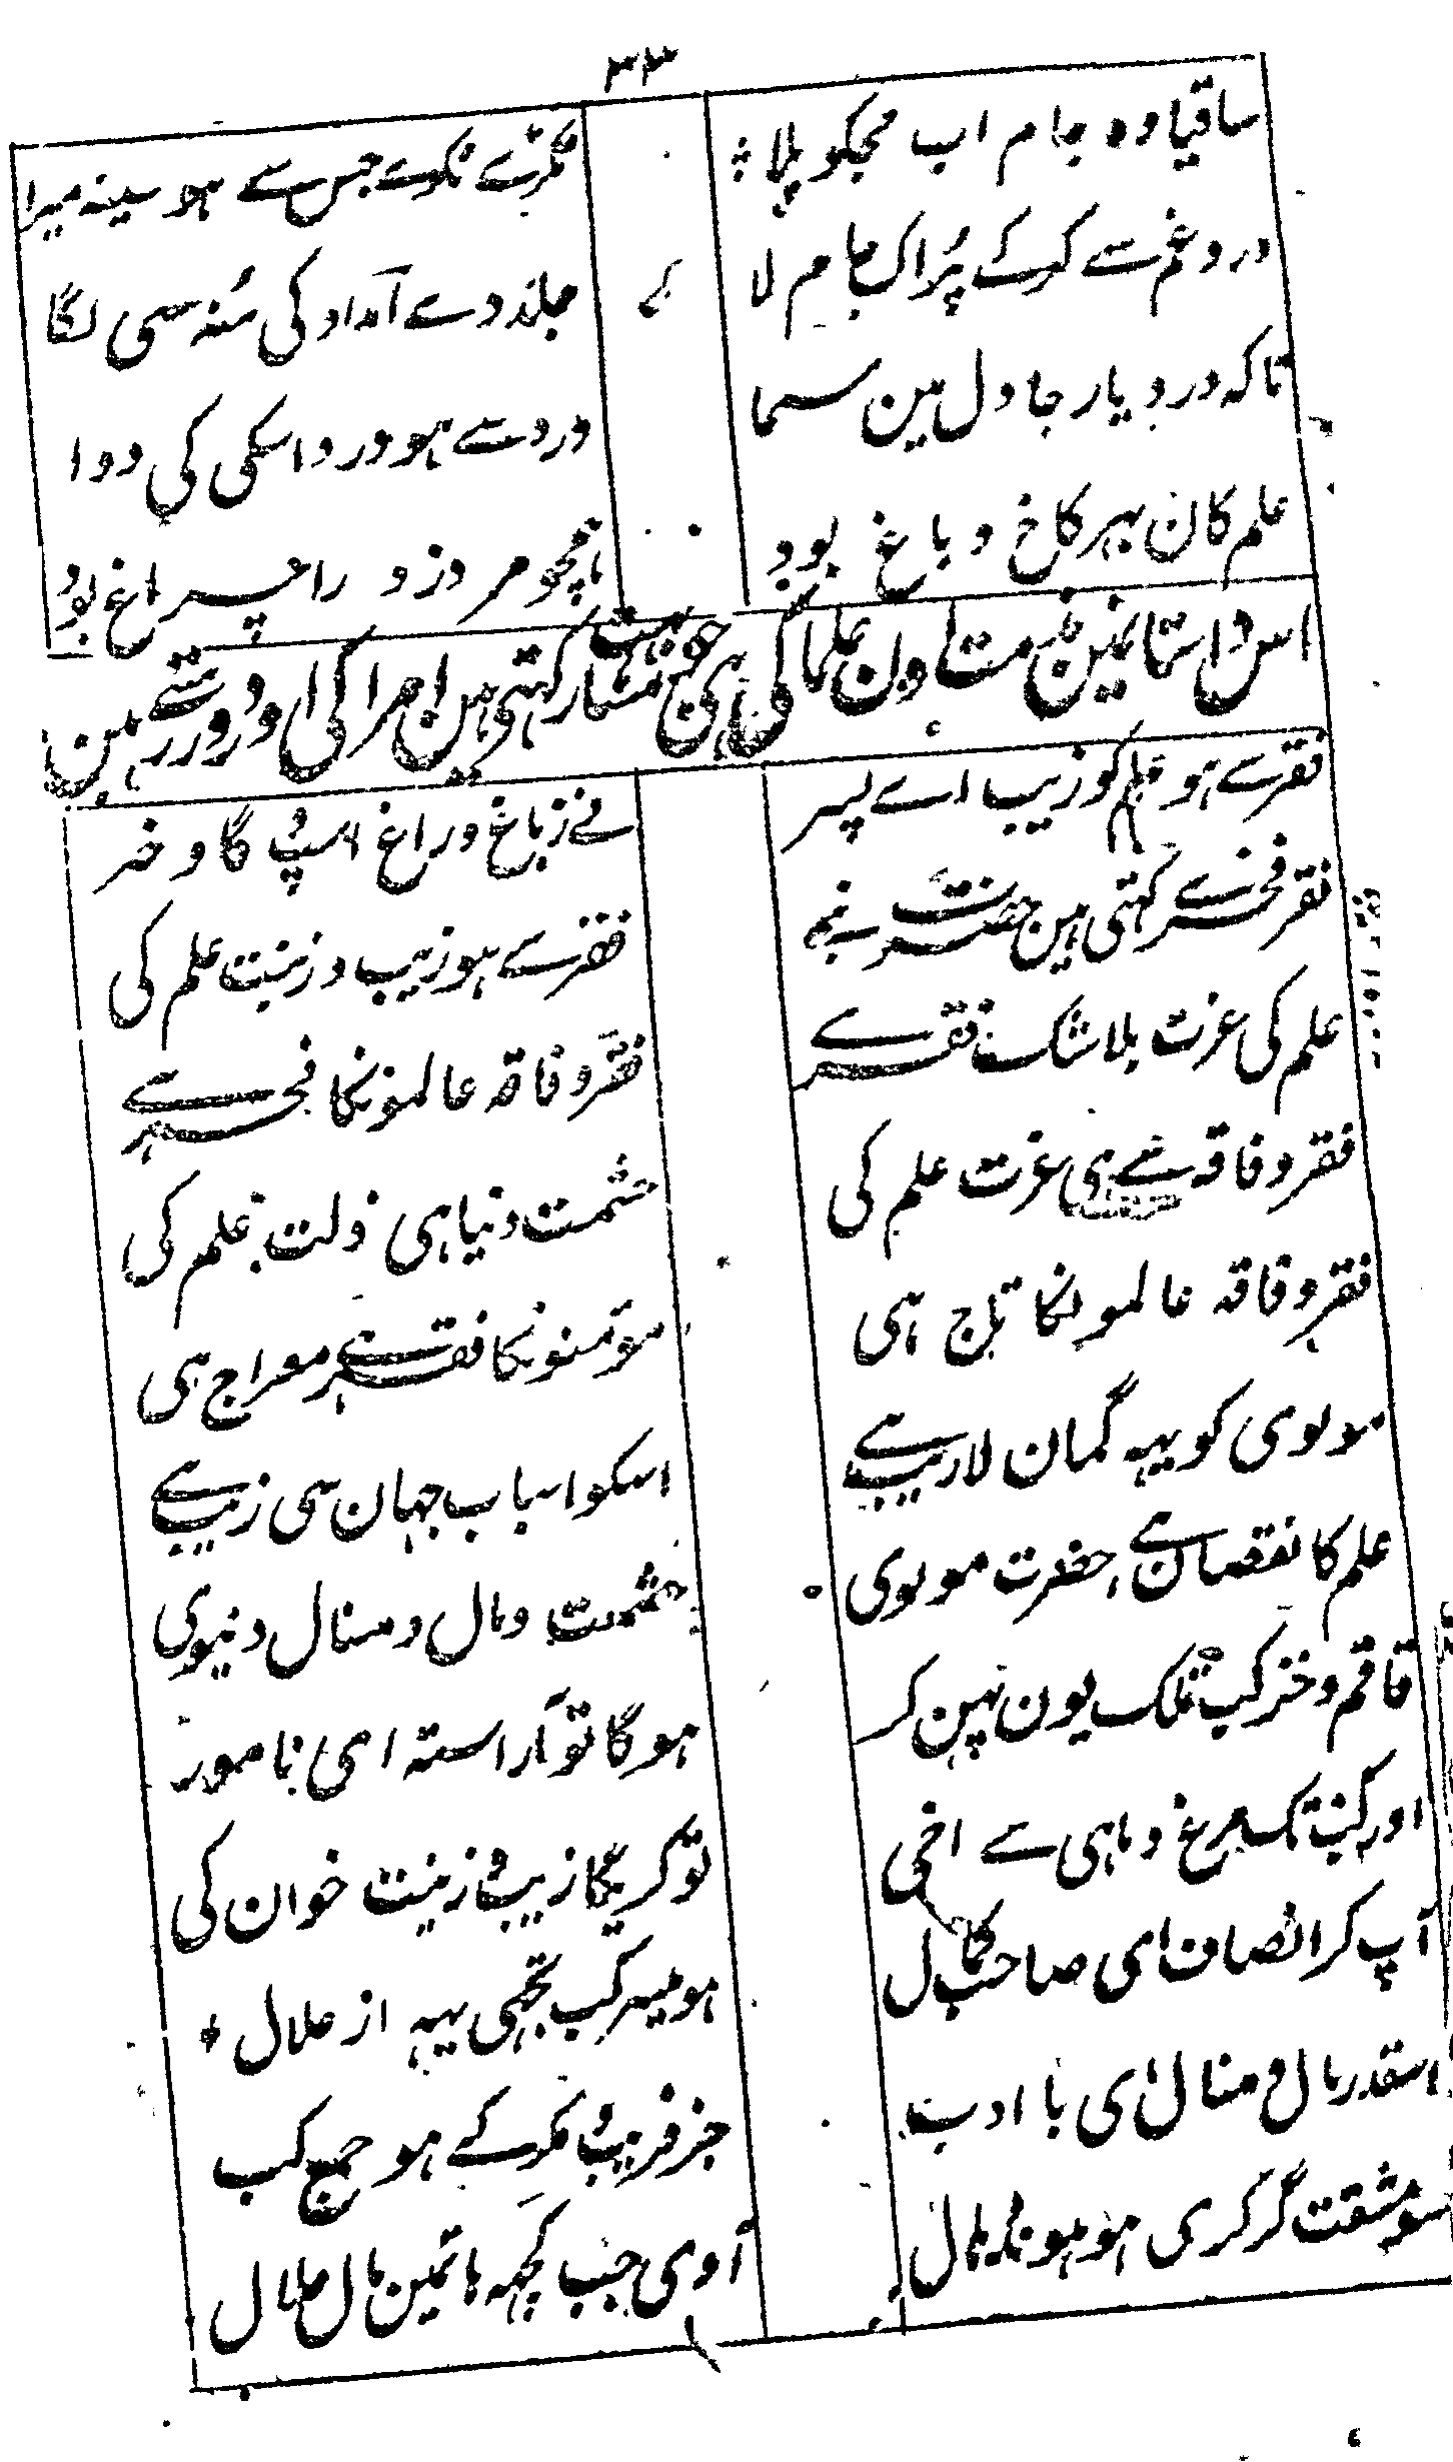 ٣٣
ساقیا وہ جام اب مجکو پلا ٹکڑے ٹکڑے جس سے ہو سینہ میرا
درد غم سے کرکے پُر اک جام لا جلد دے امداد کی مُنہ سی لگا
تاکہ درد یار جا دل مین سما درد سے ہو درد اسکی کی دوا
علم کان بہر کاخ و باغ بود ہمچو مر دزد را چراغ بود
اس داستانمین مذمت اون علما کی ہی جو رکہتی ہین امرا کی اور دور رہتے ہین
فقر سے ہو علم کو زیب اے پسر نے زباغ و راغ اسپ و گاو خر
فقر فخرے کہتی ہین حضرت نبی فقر سے ہو زیب و زینت علم کی
علم کی عزت بلا شک فقر ہے فقر و فاقہ عالمونکا فخر ہے
فقر و فاقہ سے ہی عزت علم کی حشمت دنیا ہی ذلت علم کی
فقر و فاقہ عالمونکا تاج ہی مؤمنونکا فقر ہے معراج ہی
مولوی کو یہہ گمان لاریب ہے اسکو اسباب جہان سی زیب ہے
علم کا نقصان ہے حضرت مولوی حشمت و مال و منال دنیوی
قاقم و خز کب تلک یون پہن کر ہوگا تو آراستہ ای نامور
اور کب تک مرغ و ماہی سے اخی تو کریگا زیب و زینت خوان کی
آپ کر انصاف ای صاحب کمال ہو میسر کب تجہی یہہ از حلال
اسقدر مال و منال ای با ادب جز فریب و مکر کے ہو جمع کب
سو مشقت گر کری ہو ہو نڈہال آوی جب کچہہ ہاتمین مال حلال